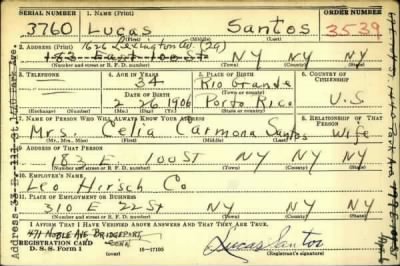 SERIAL NUMBER 1. NAME (Print) ORDER NUMBER
3760 Lucas Santos 3539
(First) (Middle) (Last)
2. ADDRESS (Print)
1626 Lexington Av. (29)
183 East 100 St NY NY NY
(Number and street or R. F. D. number) (Town) (County) (State)
3. TELEPHONE 4. AGE IN YEARS 5. PLACE OF BIRTH 6. COUNTRY OF CITIZENSHIP
34 Rio Grande
DATE OF BIRTH (Town or county)
2 26 1906 Porto Rico U.S.
(Exchange) (No.) (Mo.) (Day) (Yr.) (State or country)
7. NAME OF PERSON WHO WILL ALWAYS KNOW YOUR ADDRESS 8. RELATIONSHIP OF THAT PERSON
Mrs. Celia Carmona Santos Wife
(Mr., Mrs., Miss) (First) (Middle) (Last)
9. ADDRESS OF THAT PERSON
183 E. 100 ST NY NY NY
(Number and street or R. F. D. number) (Town) (County) (State)
10. EMPLOYER'S NAME
Leo Hirsch Co
11. PLACE OF EMPLOYMENT OR BUSINESS
310 E 22 St NY NY NY
(Number and street or R. F. D. number) (Town) (County) (State)
I AFFIRM THAT I HAVE VERIFIED ABOVE ANSWERS AND THAT THEY ARE TRUE.
471 NOBLE AVE BRIDGEPORT
CONN
REGISTRATION CARD
D. S. S. Form 1 (over) 16—17105 Lucas Santos
(Registrant's signature)